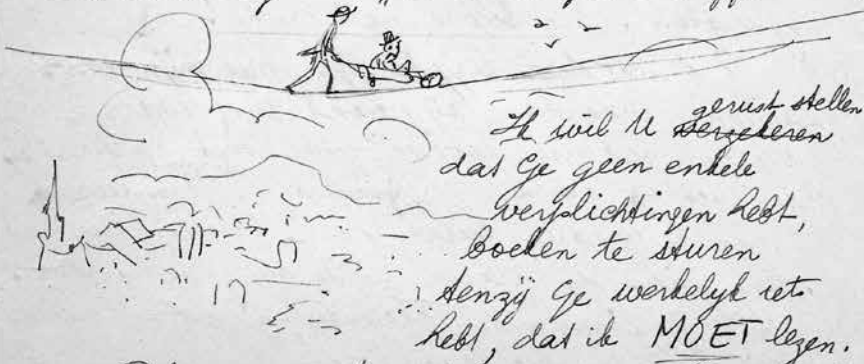 Ik wil U gerust stellen verzekeren
dat Ge geen enkele
verplichtingen hebt,
boeken te sturen
tenzij Ge werkelyk iets
hebt, dat ik MOET lezen.